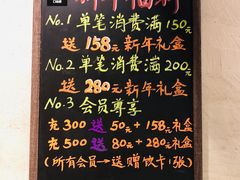 No.1 单笔消费满150元
送158元新年礼盒
No.2 单笔消费满200元
送280元新年礼盒
No.3 会员尊享
充300送50元+158元礼盒
充500送80元+280元礼盒
(所有会员→送赠饮卡1张)